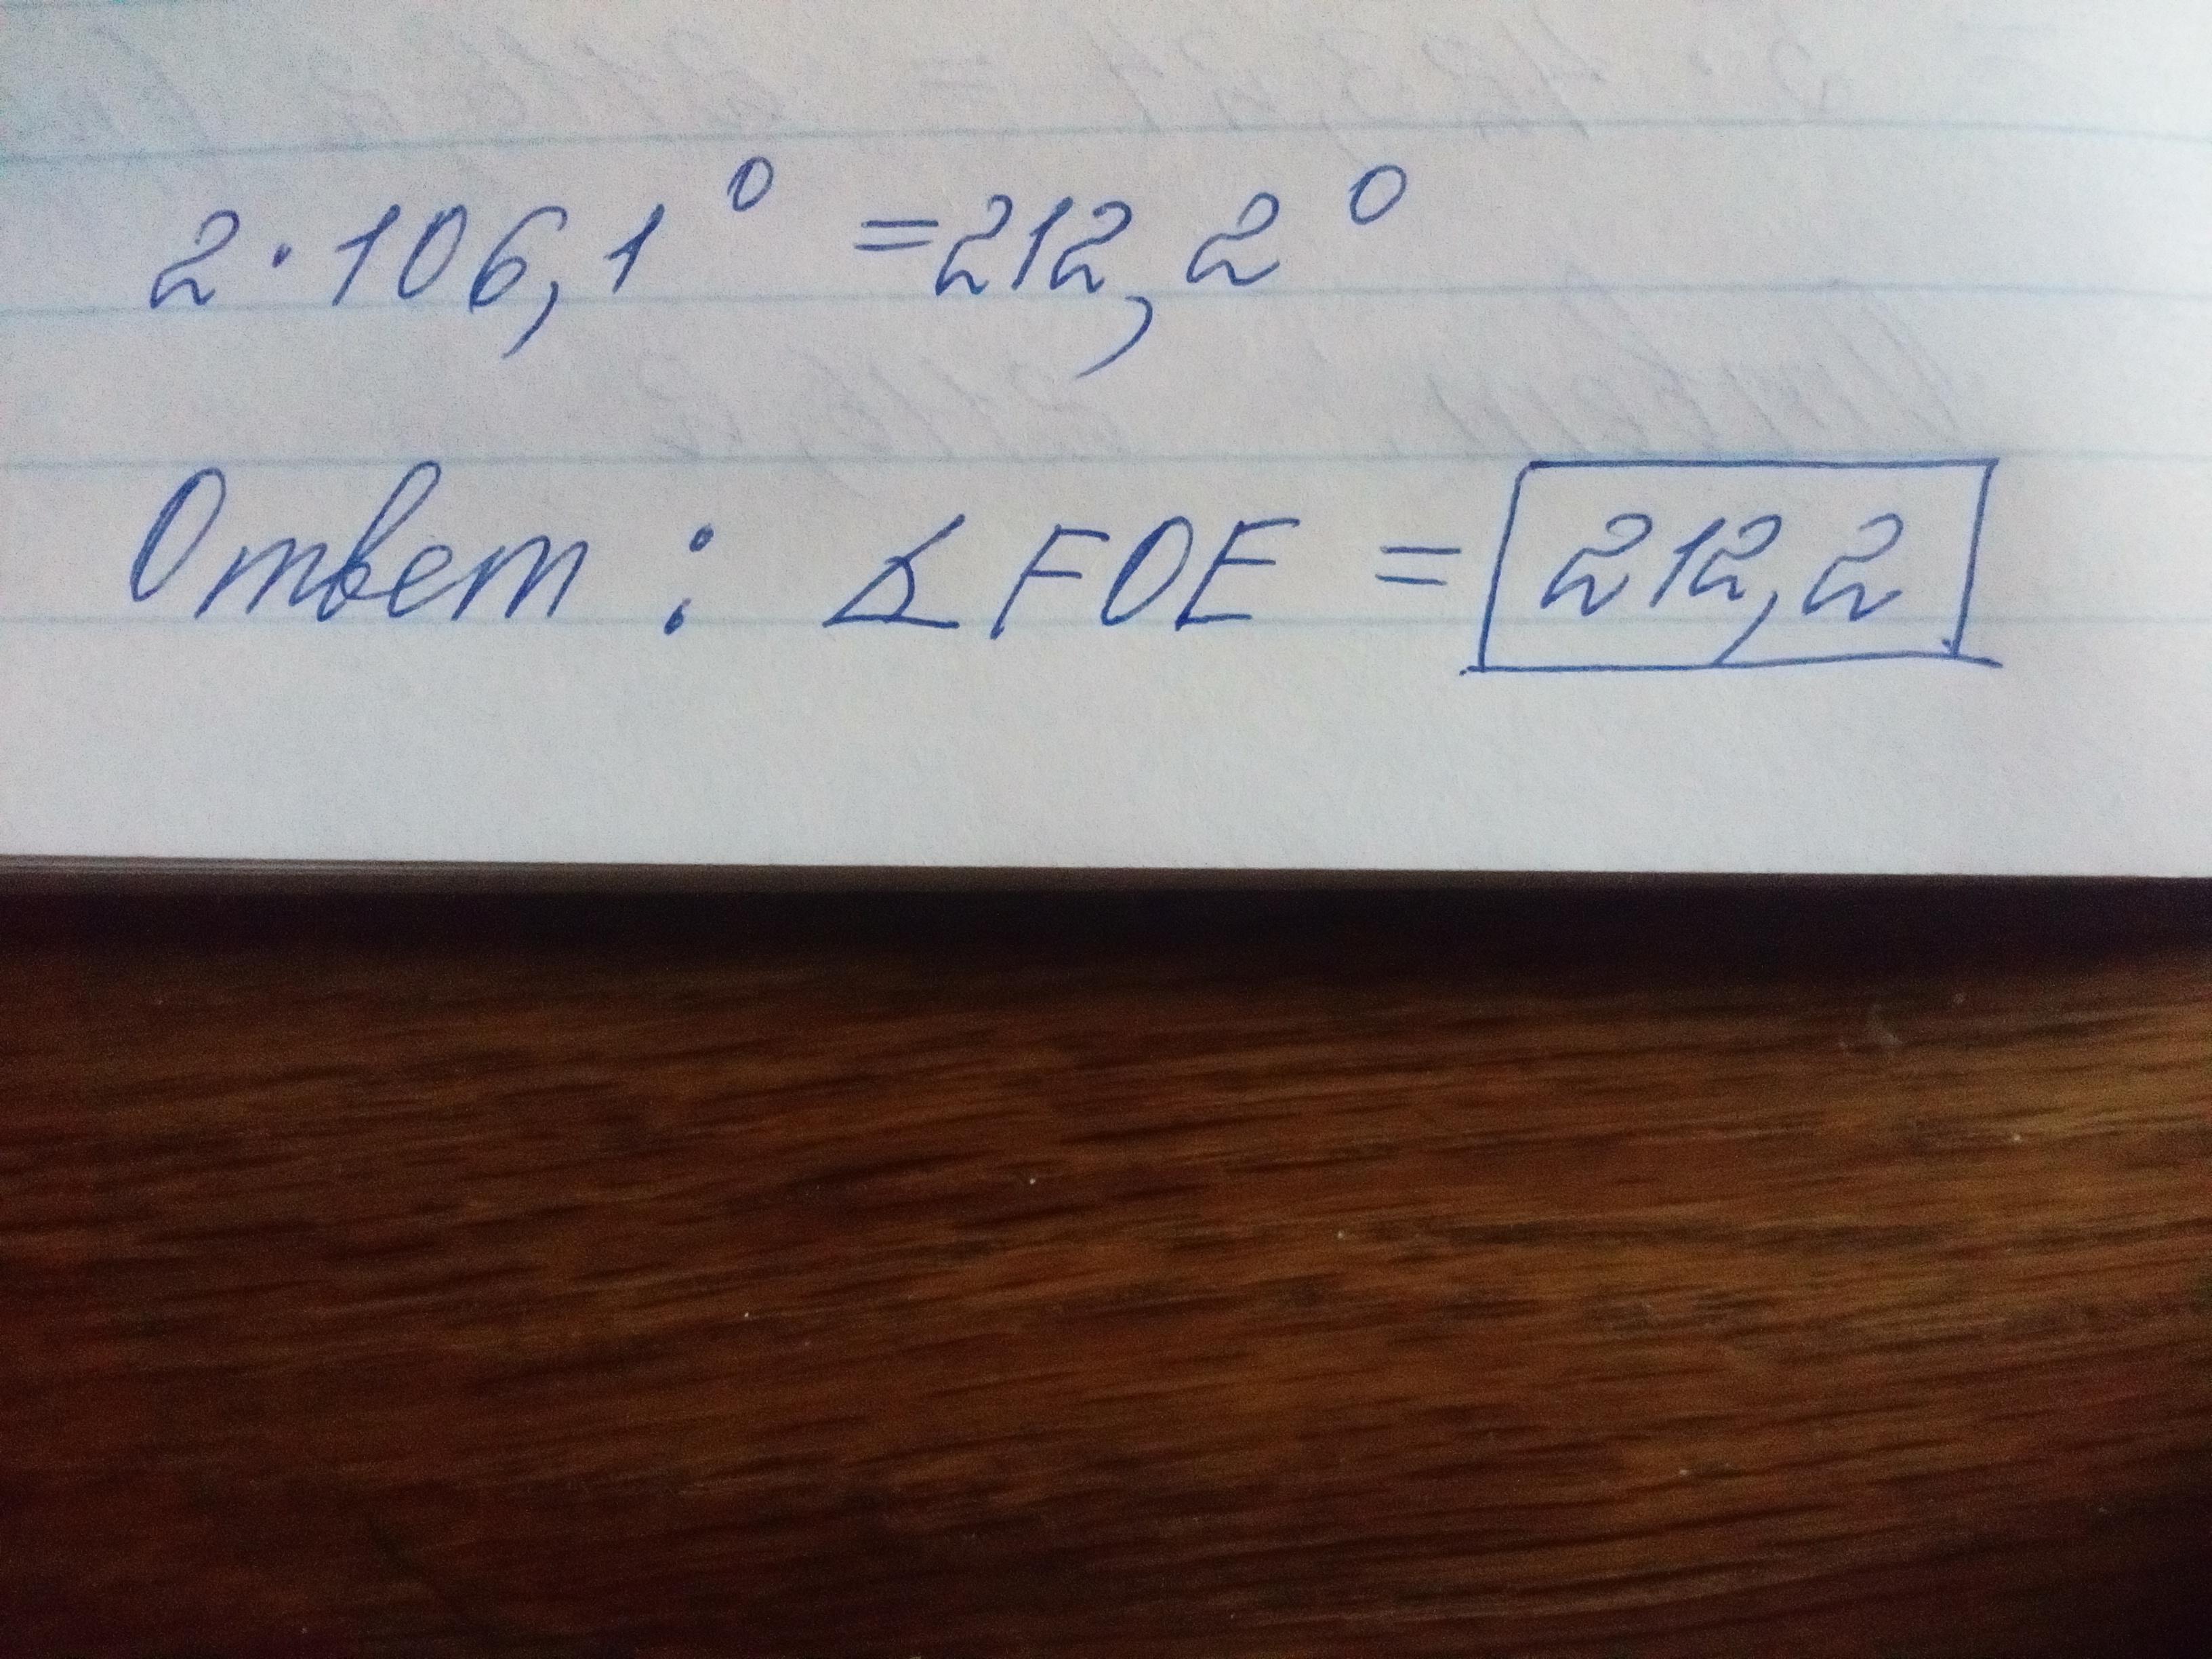 2 · 106,1° = 212,2°
Ответ: ∡FOE = 212,2